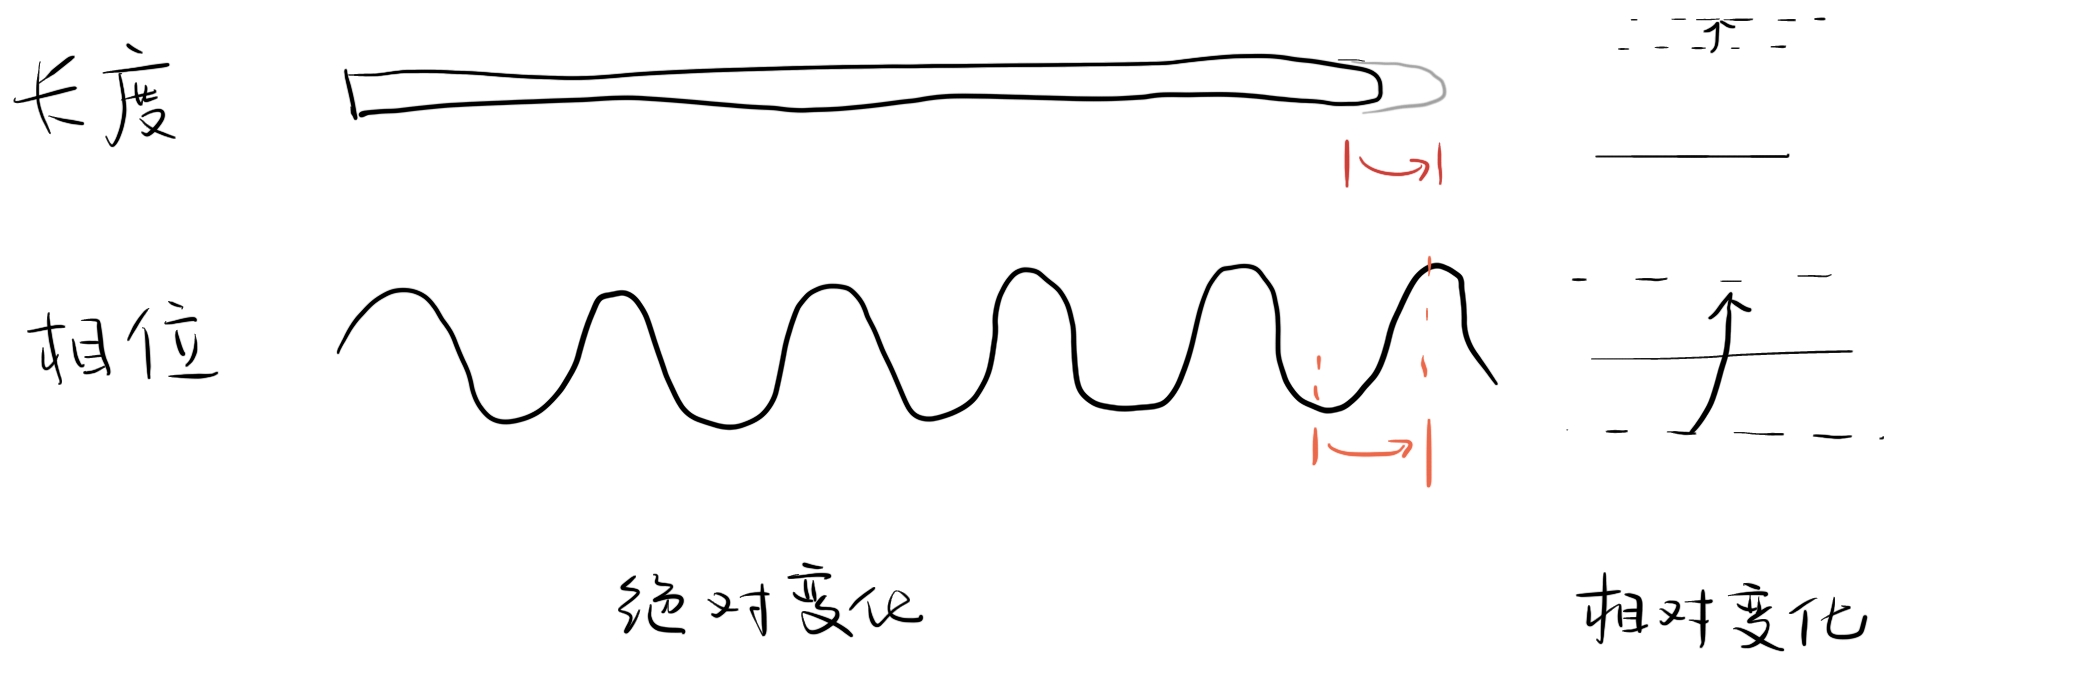 长度
相位
绝对变化 相对变化